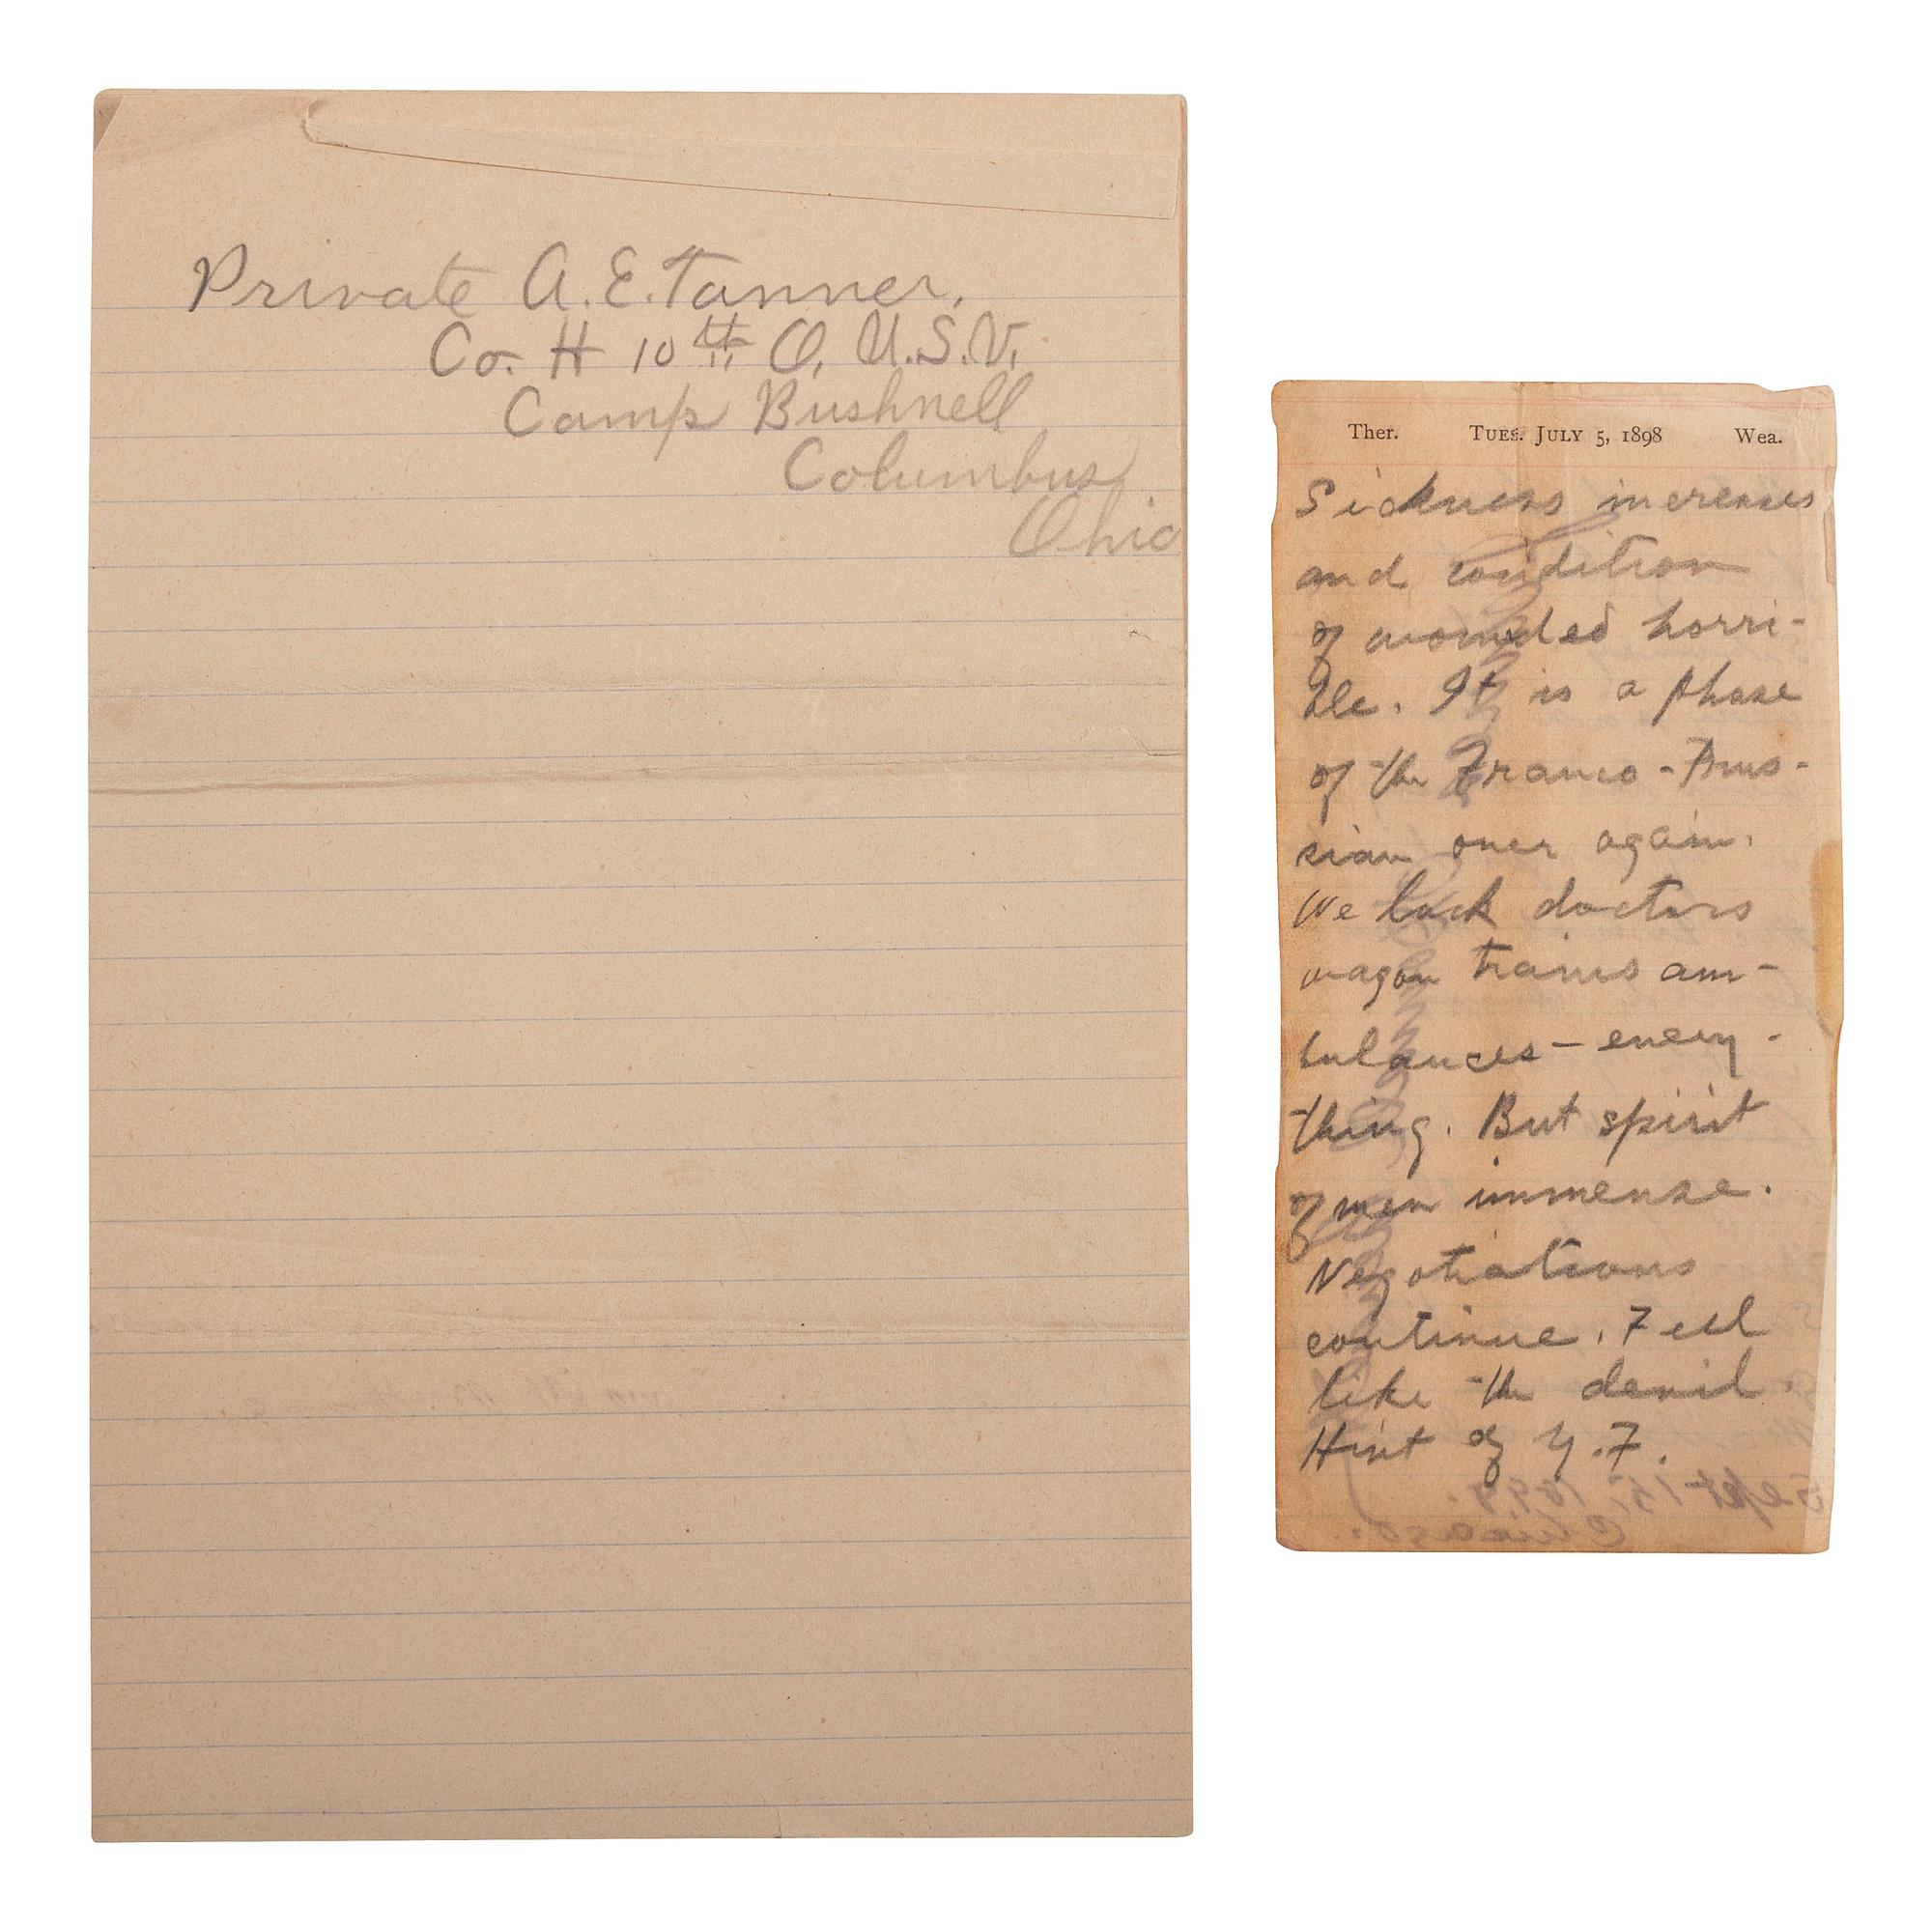 Private A. E. Tanner,
Co. H 10th O. U.S.V.
Camp Bushnell
Columbus
Ohio
Ther. TUES. JULY 5, 1898 Wea.
Sickness increases
and condition
of wounded horri-
ble. It is a phase
of the Franco-Prus-
sian over again.
We lack doctors
wagon trains am-
bulances - every-
thing. But spirit
of men immense.
Negotiations
continue. Feel
like the devil.
Hint of Y.F.